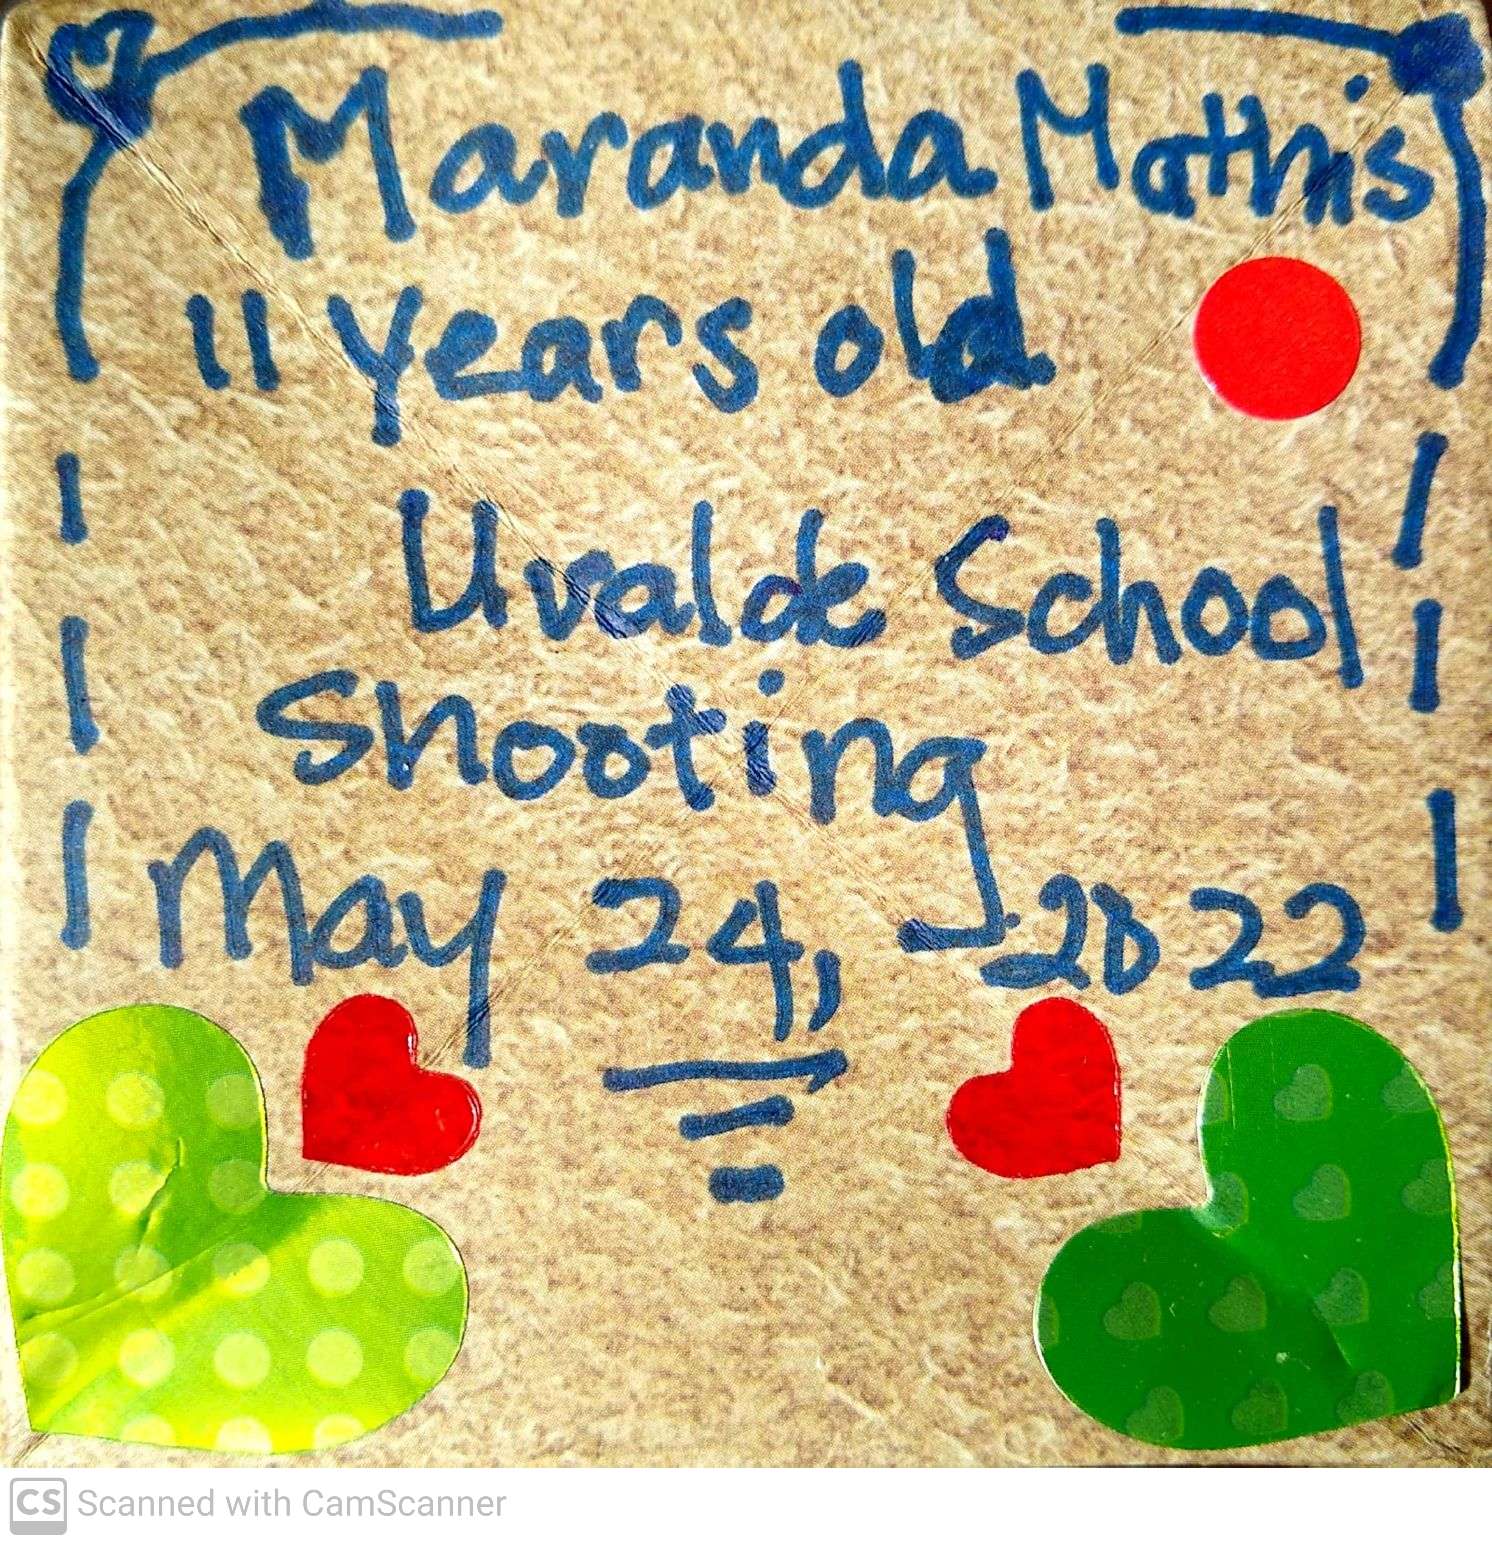 Maranda Mathis
11 years old
Uvalde School
Shooting
May 24, 2022
CS Scanned with CamScanner